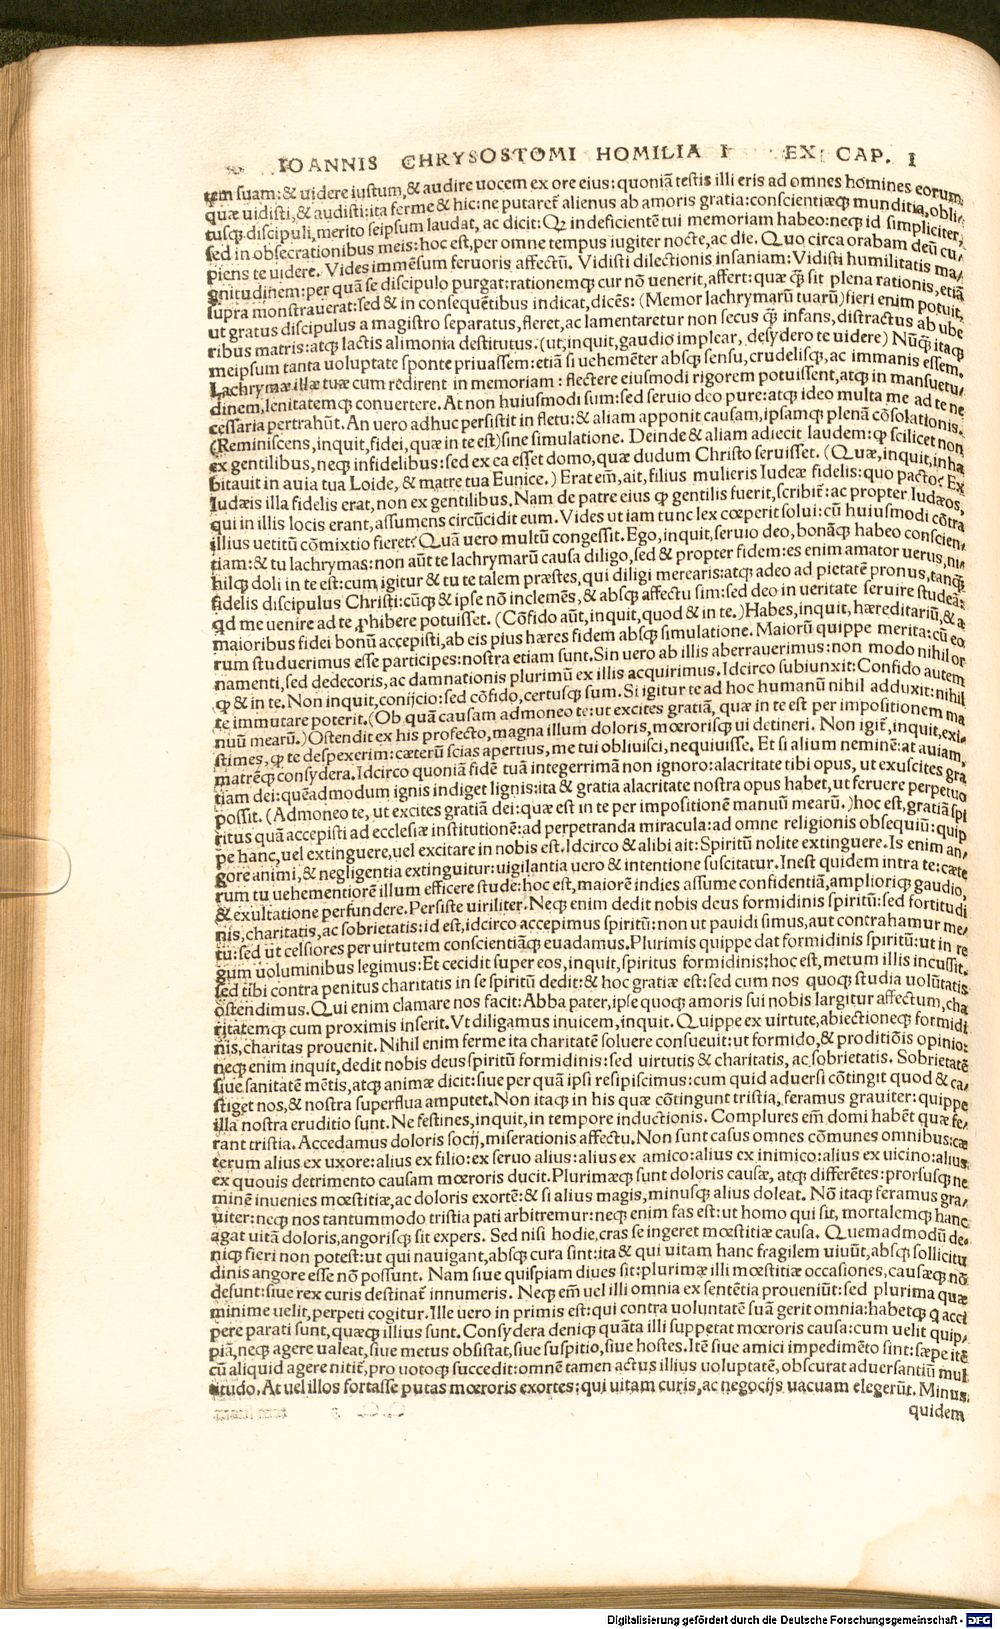 IOANNIS CHRYSOSTOMI HOMILIA I EX CAP. I
tem suam:& uidere iustum,& audire uocem ex ore eius:quoniā testis illi eris ad omnes homines eorum
quæ uidisti,& audisti:ita ferme & hic:ne putaret̄ alienus ab amoris gratia:conscientiæq; munditia,obli/
tusq; discipuli,merito seipsum laudat, ac dicit: Qꝫ indeficientē tui memoriam habeo:neq; id simpliciter,
sed in obsecrationibus meis:hoc est,per omne tempus iugiter nocte,ac die. Quo circa orabam deū cu/
piens te uidere. Vides immēsum feruoris affectū. Vidisti dilectionis insaniam:Vidisti humilitatis ma/
gnitudinem:per quā se discipulo purgat:rationemq; cur nō uenerit,affert:quæ q̄ sit plena rationis,etiā
supra monstrauerat:sed & in consequētibus indicat,dicēs: (Memor lachrymarū tuarū)fieri enim potuit,
ut gratus discipulus a magistro separatus,fleret,ac lamentaretur non secus q̄ infans,distractus ab ube
ribus matris:atq; lactis alimonia destitutus.(ut,inquit,gaudio implear, desydero te uidere) Nūq̄ itaq;
meipsum tanta uoluptate sponte priuassem:etiā si uehemēter absq; sensu,crudelisq;,ac immanis essem.
Lachrymæ illæ tuæ cum redirent in memoriam : flectere eiusmodi rigorem potuissent,atq; in mansuetu/
dinem,lenitatemq; conuertere. At non huiusmodi sum:sed seruio deo pure:atq; ideo multa me ad te ne
cessaria pertrahūt. An uero adhuc persistit in fletu:& aliam apponit causam,ipsamq; plenā cōsolationis.
(Reminiscens,inquit,fidei,quæ in te est)sine simulatione. Deinde & aliam adiecit laudem:ꝙ scilicet non
ex gentilibus,neq; infidelibus:sed ex ea esset domo,quæ dudum Christo seruisset. (Quæ,inquit,inha
bitauit in auia tua Loide, & matre tua Eunice.) Erat em̄,ait,filius mulieris Iudeæ fidelis:quo pacto? Ex
Iudæis illa fidelis erat,non ex gentilibus. Nam de patre eius ꝙ gentilis fuerit,scribit̄:ac propter Iudæos,
qui in illis locis erant,assumens circūcidit eum. Vides ut iam tunc lex cœperit solui:cū huiusmodi cōtra
illius uetitū cōmixtio fieret? Quā uero multū congessit. Ego,inquit,seruio deo,bonāq; habeo conscien/
tiam:& tu lachrymas:non aūt te lachrymarū causa diligo,sed & propter fidem:es enim amator uerus,ni/
hilq; doli in te est:cum igitur & tu te talem præstes,qui diligi merearis:atq; adeo ad pietatē pronus,tanq̄
fidelis discipulus Christi:cūq; & ipse nō inclemēs,& absq; affectu sim:sed deo in ueritate seruire studeā:
qd me uenire ad te ꝓhibere potuisset. (Cōfido aūt,inquit,quod & in te.)Habes,inquit,hæreditariū,& a
maioribus fidei bonū accepisti,ab eis pius hæres fidem absq; simulatione. Maiorū quippe merita:cū eo
rum studuerimus esse participes:nostra etiam sunt.Sin uero ab illis aberrauerimus:non modo nihil or
namenti,sed dedecoris,ac damnationis plurimū ex illis acquirimus.Idcirco subiunxit:Confido autem
ꝙ & in te. Non inquit,conijcio:sed cōfido,certusq; sum.Si igitur te ad hoc humanū nihil adduxit:nihil
te immutare poterit.(Ob quā causam admoneo te:ut excites gratiā, quæ in te est per impositionem ma
nuū mearū.)Ostendit ex his profecto,magna illum doloris,mœrorisq; ui detineri. Non igit̄,inquit,exi/
stimes,ꝙ te despexerim:cæterū scias apertius,me tui obliuisci,nequiuisse. Et si alium neminē:at auiam,
matrēq; consydera.Idcirco quoniā fidē tuā integerrimā non ignoro:alacritate tibi opus, ut exuscites gra
tiam dei:quēadmodum ignis indiget lignis:ita & gratia alacritate nostra opus habet,ut feruere perpetuo
possit. (Admoneo te, ut excites gratiā dei:quæ est in te per impositionē manuū mearū.)hoc est,gratiā spi
ritus quā accepisti ad ecclesiæ institutionē:ad perpetranda miracula:ad omne religionis obsequiū:quip
pe hanc,uel extinguere,uel excitare in nobis est.Idcirco & alibi ait:Spiritū nolite extinguere.Is enim an/
gore animi,& negligentia extinguitur:uigilantia uero & intentione suscitatur.Inest quidem intra te:cæte
rum tu uehementiorē illum efficere stude:hoc est,maiorē indies assume confidentiā,amplioriq; gaudio,
& exultatione perfundere.Persiste uiriliter.Neq; enim dedit nobis deus formidinis spiritū:sed fortitudi
nis,charitatis,ac sobrietatis:id est,idcirco accepimus spiritū:non ut pauidi simus,aut contrahamur me/
tu:sed ut celsiores per uirtutem conscientiāq; euadamus.Plurimis quippe dat formidinis spiritū:ut in re
gum uoluminibus legimus:Et cecidit super eos,inquit,spiritus formidinis:hoc est,metum illis incussit.
sed tibi contra penitus charitatis in se spiritū dedit:& hoc gratiæ est:sed cum nos quoq; studia uolūtatis
ostendimus.Qui enim clamare nos facit:Abba pater,ipse quoq; amoris sui nobis largitur affectum,cha
ritatemq; cum proximis inserit.Vt diligamus inuicem,inquit. Quippe ex uirtute,abiectioneq; formidi
nis,charitas prouenit. Nihil enim ferme ita charitatē soluere consueuit:ut formido,& proditiōis opinio:
neq; enim inquit,dedit nobis deus spiritū formidinis:sed uirtutis & charitatis, ac sobrietatis. Sobrietatē
siue sanitatē mētis,atq; animæ dicit:siue per quā ipsi resipiscimus:cum quid aduersi cōtingit quod & ca/
stiget nos,& nostra superflua amputet.Non itaq; in his quæ cōtingunt tristia, feramus grauiter:quippe
illa nostra eruditio sunt. Ne festines,inquit,in tempore inductionis. Complures em̄ domi habēt quæ fe/
rant tristia. Accedamus doloris socij,miserationis affectu.Non sunt casus omnes cōmunes omnibus:cæ
terum alius ex uxore:alius ex filio:ex seruo alius:alius ex amico:alius ex inimico:alius ex uicino:alius
ex quouis detrimento causam mœroris ducit.Plurimæq; sunt doloris causæ, atq; differētes:prorsusq; ne
minē inuenies mœstitiæ,ac doloris exortē:& si alius magis,minusq; alius doleat. Nō itaq; feramus gra/
uiter:neq; nos tantummodo tristia pati arbitremur:neq; enim fas est:ut homo qui sit, mortalemq; hanc
agat uitā doloris,angorisq; sit expers. Sed nisi hodie,cras se ingeret mœstitiæ causa. Quemadmodū de/
niq; fieri non potest:ut qui nauigant,absq; cura sint:ita & qui uitam hanc fragilem uiuūt,absq; sollicitu
dinis angore esse nō possunt. Nam siue quispiam diues sit:plurimæ illi mœstitiæ occasiones,causæq; nō
desunt:siue rex curis destinat̄ innumeris. Neq; em̄ uel illi omnia ex sentētia proueniūt:sed plurima quæ
minime uelit,perpeti cogitur.Ille uero in primis est:qui contra uoluntatē suā gerit omnia:habetq; q acci
pere parati sunt,quæq; illius sunt. Consydera deniq; quāta illi suppetat mœroris causa:cum uelit quip/
piā,neq; agere ualeat,siue metus obsistat,siue suspitio,siue hostes. Itē siue amici impedimēto sint:sæpe itē
cū aliquid agere nitit̄,pro uotoq; succedit:omnē tamen actus illius uoluptatē,obscurat aduersantiū mul
titudo.At uel illos fortasse putas mœroris exortes:qui uitam curis,ac negocijs uacuam elegerūt. Minus
quidem
Digitalisierung gefördert durch die Deutsche Forschungsgemeinschaft - DFG